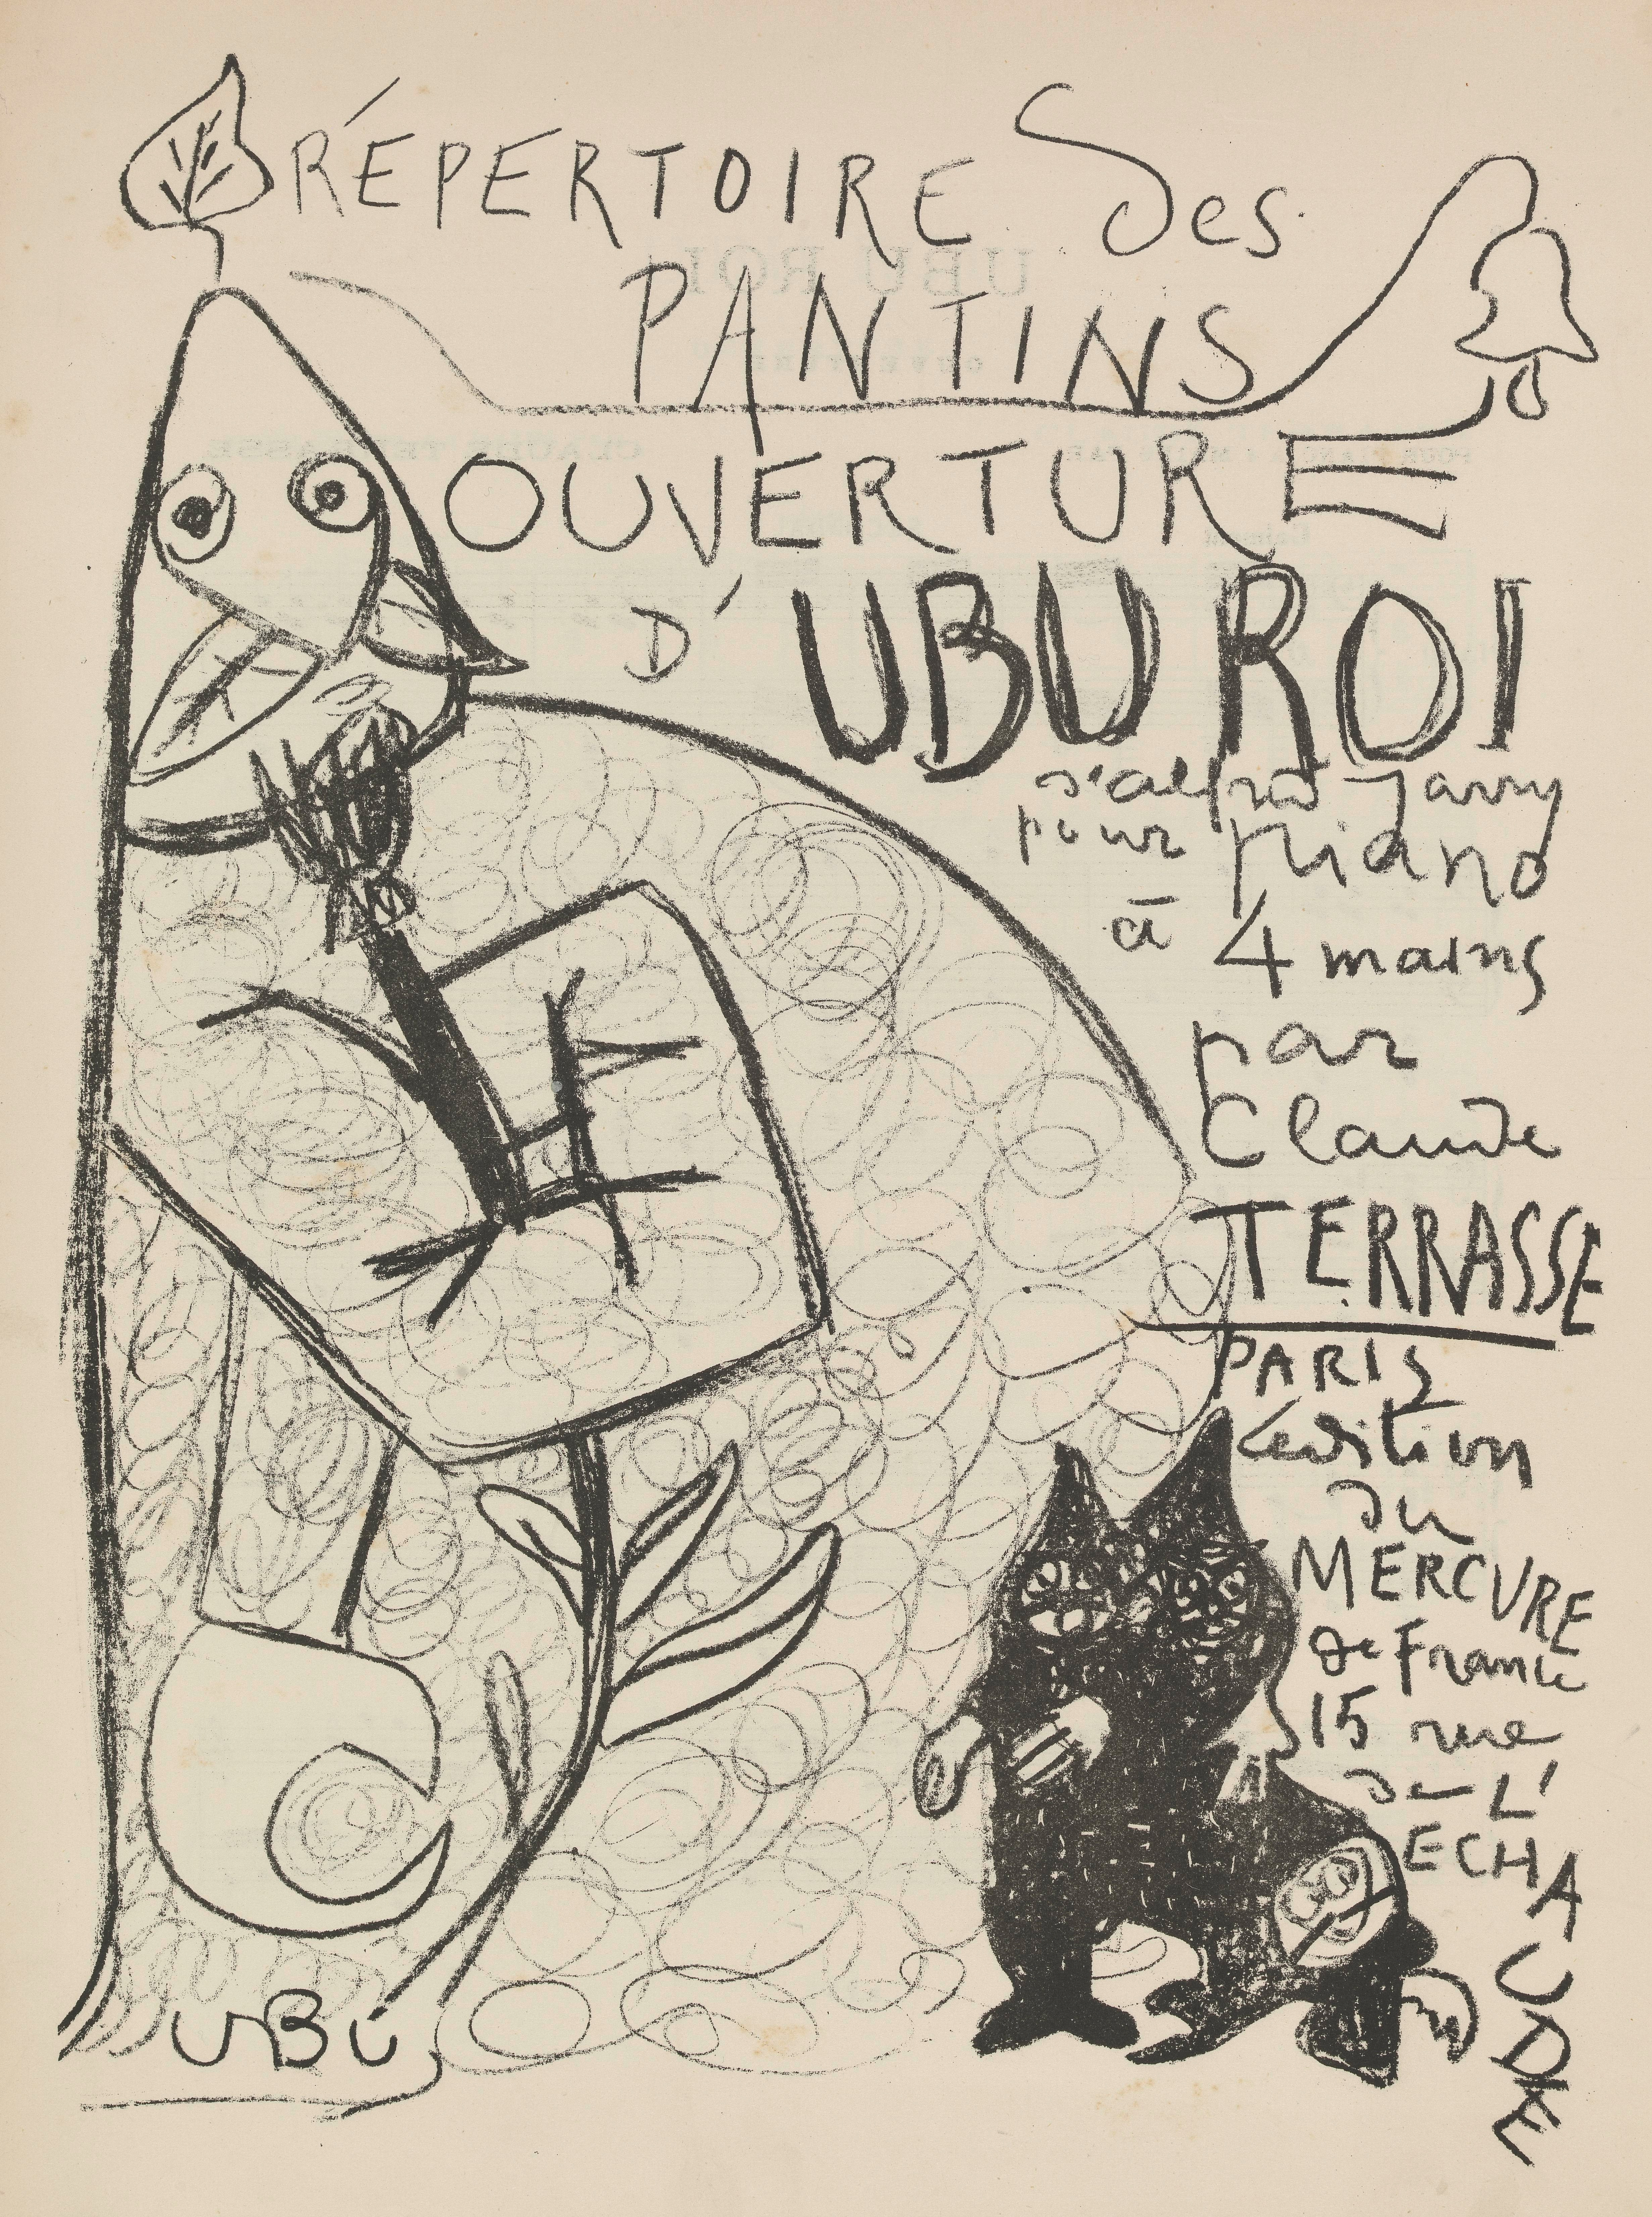 RÉPERTOIRE des
PANTINS
OUVERTURE
D'UBU ROI
d'alfred Jarry
pour piano
à 4 mains
par
Claude
TERRASSE
PARIS
édition
du
MERCVRE
de France
15 rue
de L'
ECHAUDE
UBU